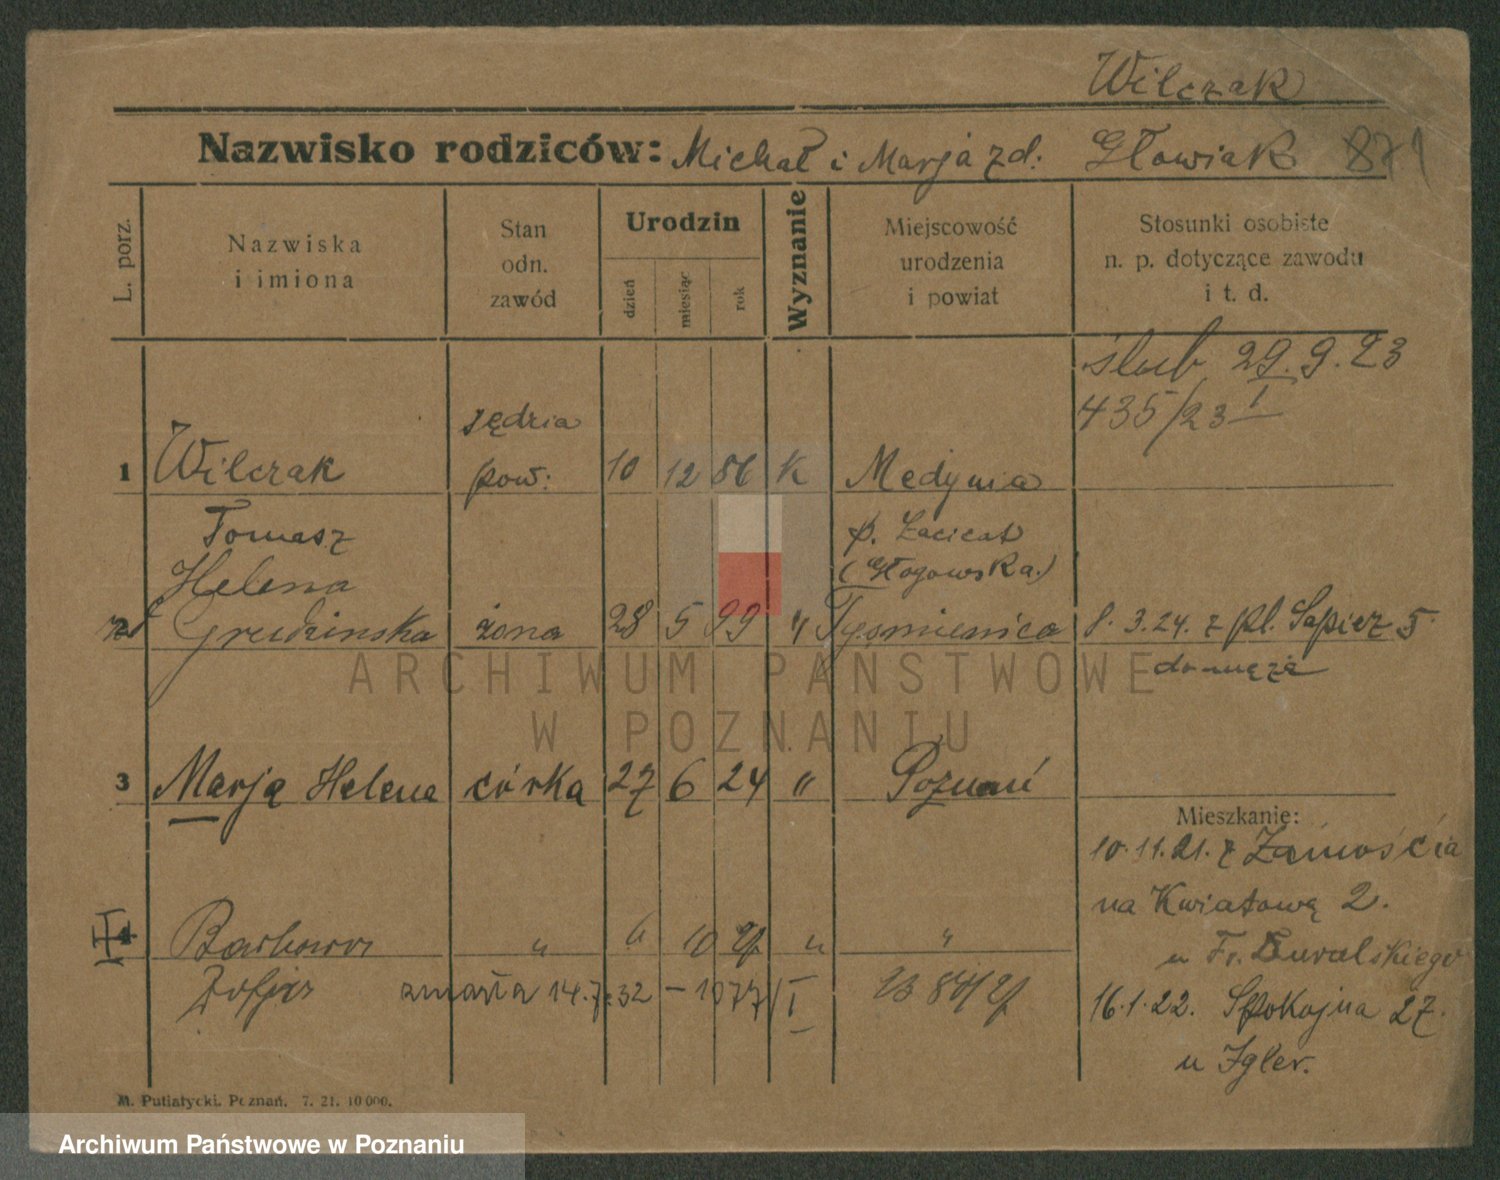 Wilczak
Nazwisko rodziców: Michał i Marja z d. Głowiak 871
L. porz.
Nazwiska
i imiona
Stan
odn.
zawód
Urodzin
dzień
miesiąc
rok
Wyznanie
Miejscowość
urodzenia
i powiat
Stosunki osobiste
n. p. dotyczące zawodu
i t. d.
ślub 29.9.23
435/23 I
1 Wilczak sędzia pow: 10 12 86 K Medynia
Tomasz p. Łacicat
(Głogowska)
Helena
2 Grudzinska żona 28 5 99 " Tyśmienica 8.3.24. z pl. Sapież 5
do męża
ARCHIWUM PAŃSTWOWE
W POZNANIU
3 Marja Helena córka 27 6 24 " Poznań
Mieszkanie:
10.11.21. z Zamościa
na Kwiatową 2.
Barbara " 10 " "
u Fr.
Zofja zmarła 14.7.32 - 1077/I
16.1.22. Spokojna 27.
u Igler.
M. Putiatycki. Poznań. 7. 21. 10000.
Archiwum Państwowe w Poznaniu